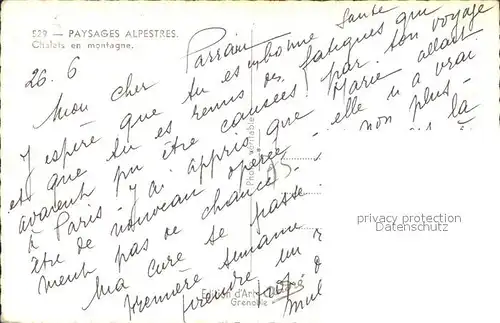 529 — PAYSAGES ALPESTRES.
Chalets en montagne.
26. 6
Mon cher Parrain
J'espère que tu es en bonne santé
et que tu es remis des fatigues qui
avaient pu être causées par ton voyage
à Paris - J'ai appris que Marie allait
être de nouveau opérée - elle n'a vrai
ment pas de chance - non plus -
Ma cure se passe est là
première semaine
prendre un
Photo véritable
Edition d'Art
Grenoble
privacy protection
www.oldthing.de